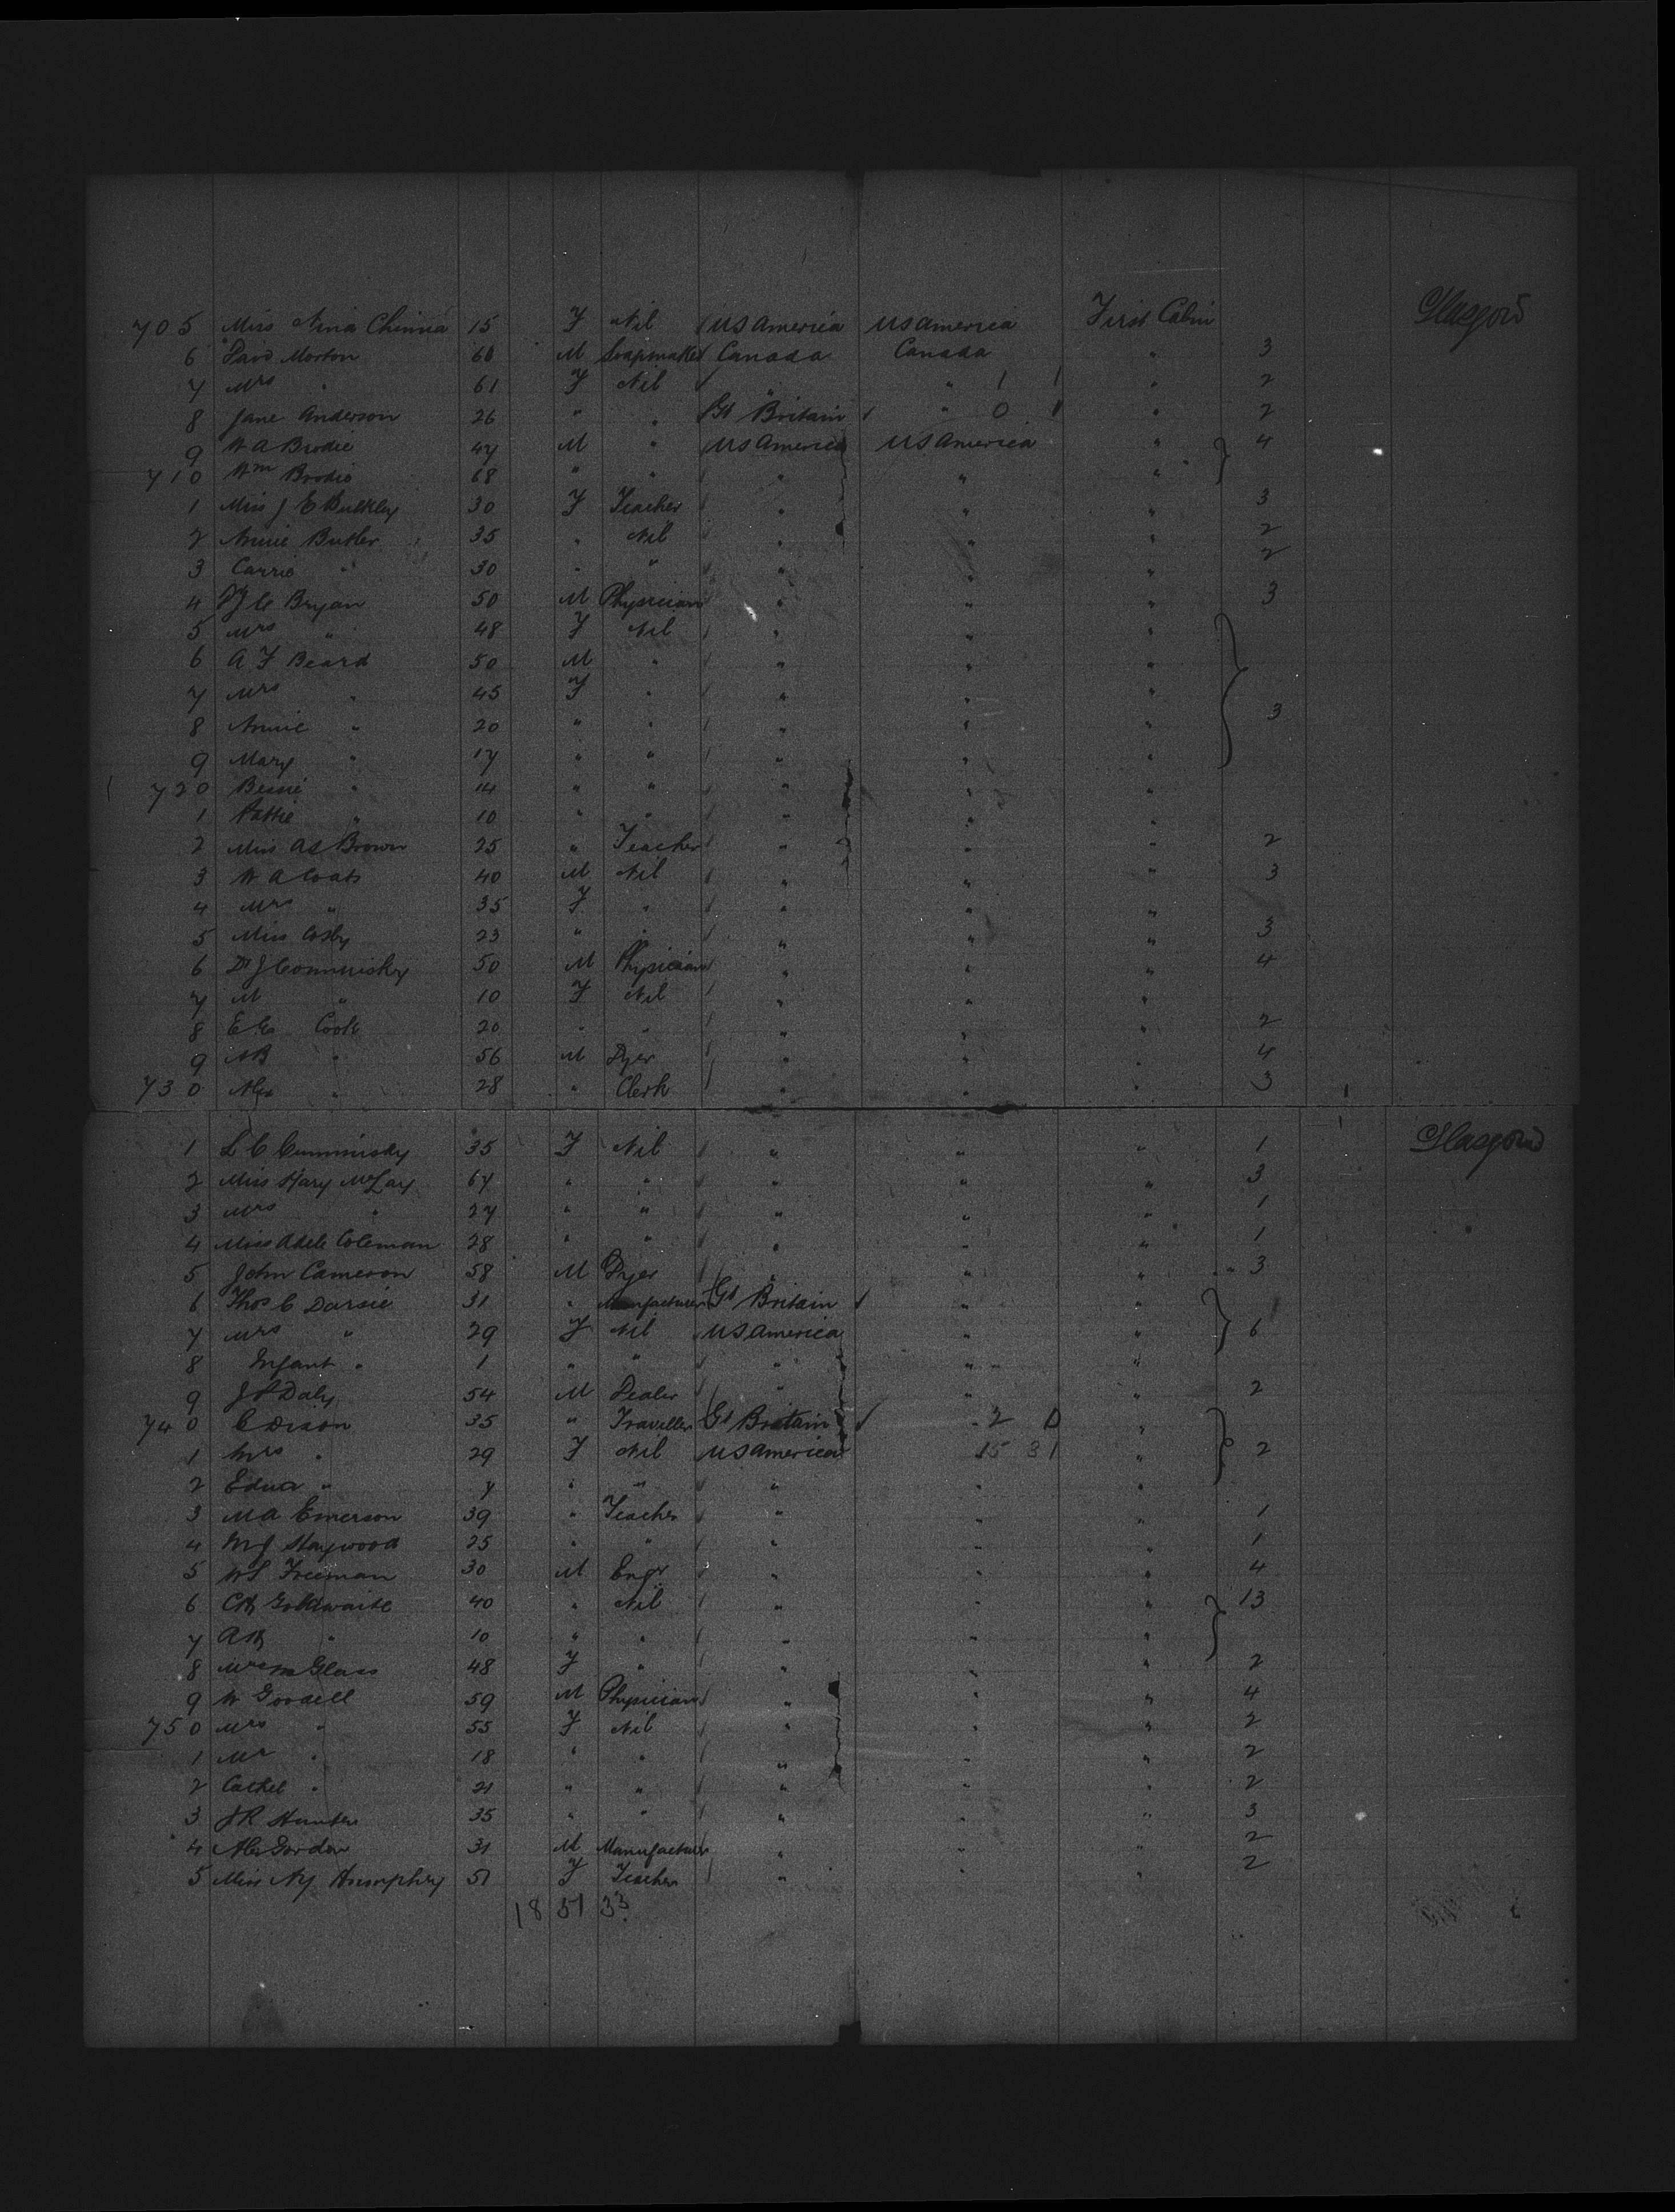 705 Miss Nina Chinna 15 F Nil US America US America First Cabin Glasgow
6 David Morton 60 M Soapmaker Canada Canada " 3
7 Mrs " 61 F Nil " " 1 1 " 2
8 Jane Anderson 26 " " Gt Britain " 0 1 " 2
9 W A Brodie 47 M " US America US America " 4
710 Wm Brodie 68 " " " " "
1 Miss J E Bulkley 30 F Teacher " " " 3
2 Annie Butler 35 " Nil " " " 2
3 Carrie " 30 " " " " " 2
4 Bryan 50 M Physician " " " 3
5 Mrs " 48 F Nil " " "
6 A F Beard 50 M " " " "
7 Mrs " 45 F " " " "
8 Annie " 20 " " " " " 3
9 Mary " 17 " " " " "
720 Bessie " 14 " " " " "
1 Hattie " 10 " " " " "
2 Miss A S Brown 25 " Teacher " " " 2
3 W A Coats 40 M Nil " " " 3
4 Mrs " 35 F " " " "
5 Miss Cosby 23 " " " " " 3
6 Dr J Comminsky 50 M Physician " " " 4
7 M " 10 F Nil " " "
8 Cook 20 " " " " " 2
9 " 56 M Dyer " " " 4
730 Alex " 28 " Clerk " " " 3
1 L C Cumminsky 35 F Nil " " " 1 Glasgow
2 Miss Mary McLay 67 " " " " " 3
3 Mrs " 27 " " " " " 1
4 Miss Adele Coleman 28 " " " " " 1
5 John Cameron 58 M Dyer " " " 3
6 Thos C Darsie 31 " Manufacturer Gt Britain " "
7 Mrs " 29 F Nil US America " " 6
8 Infant " 1 " " " " "
9 J A Daly 54 M Dealer " " " 2
740 C Dixon 35 " Traveller Gt Britain " 2 0 "
1 Mrs " 29 F Nil US America 15 31 " 2
2 Edna " 7 " " " " "
3 M A Emerson 39 " Teacher " " " 1
4 M J Haywood 25 " " " " " 1
5 W S Freeman 30 M Engr " " " 4
6 C H Goldwaite 40 " Nil " " " 13
7 A H " 10 " " " " "
8 Mrs M Glass 48 F " " " " 2
9 W Goodell 59 M Physician " " " 4
750 Mrs " 55 F Nil " " " 2
1 " 18 " " " " " 2
2 " 21 " " " " " 2
3 J R Hunter 35 " " " " " 3
4 Alex Gordon 31 M Manufacturer " " " 2
5 Miss Humphrey 51 F Teacher " " " 2
18 51 33